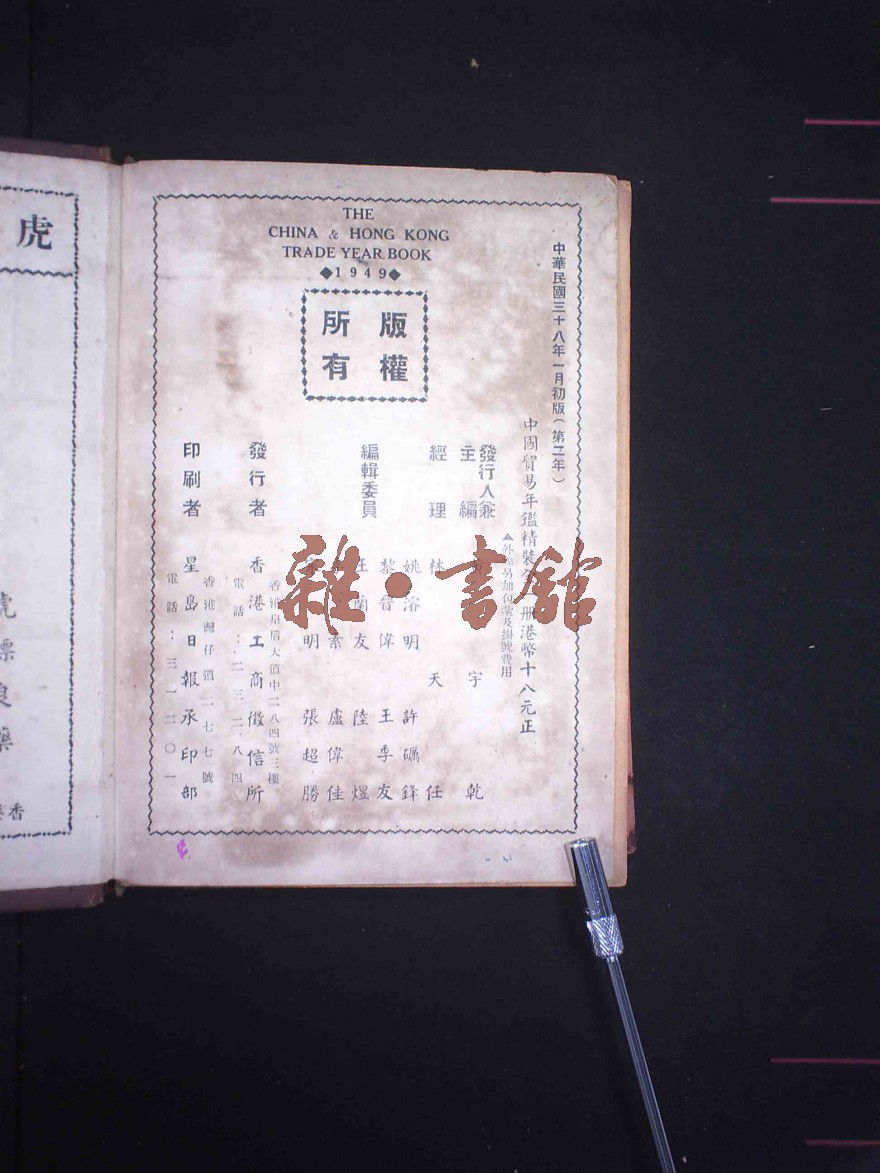 THE
CHINA & HONG KONG
TRADE YEAR BOOK
◆1949◆
版權
所有
中華民國三十八年一月初版(第二年)
中國貿易年鑑精裝 册港幣十八元正
▲外 另加包 及掛號費用
發行人兼
主編 宇乾
經理 林天任
編輯委員
姚浴明 許礪鋒
黎晉偉 王季友
汪蘭友 陸煜
素 盧偉佳
明 張超勝
發行者 香港工商徵信所
香港皇后大道中二八四號三樓
電話:二三二八四
印刷者 星島日報承印部
香港灣仔道一七七號
電話:三一二〇一
虎
虎標良藥
香
雜·書館